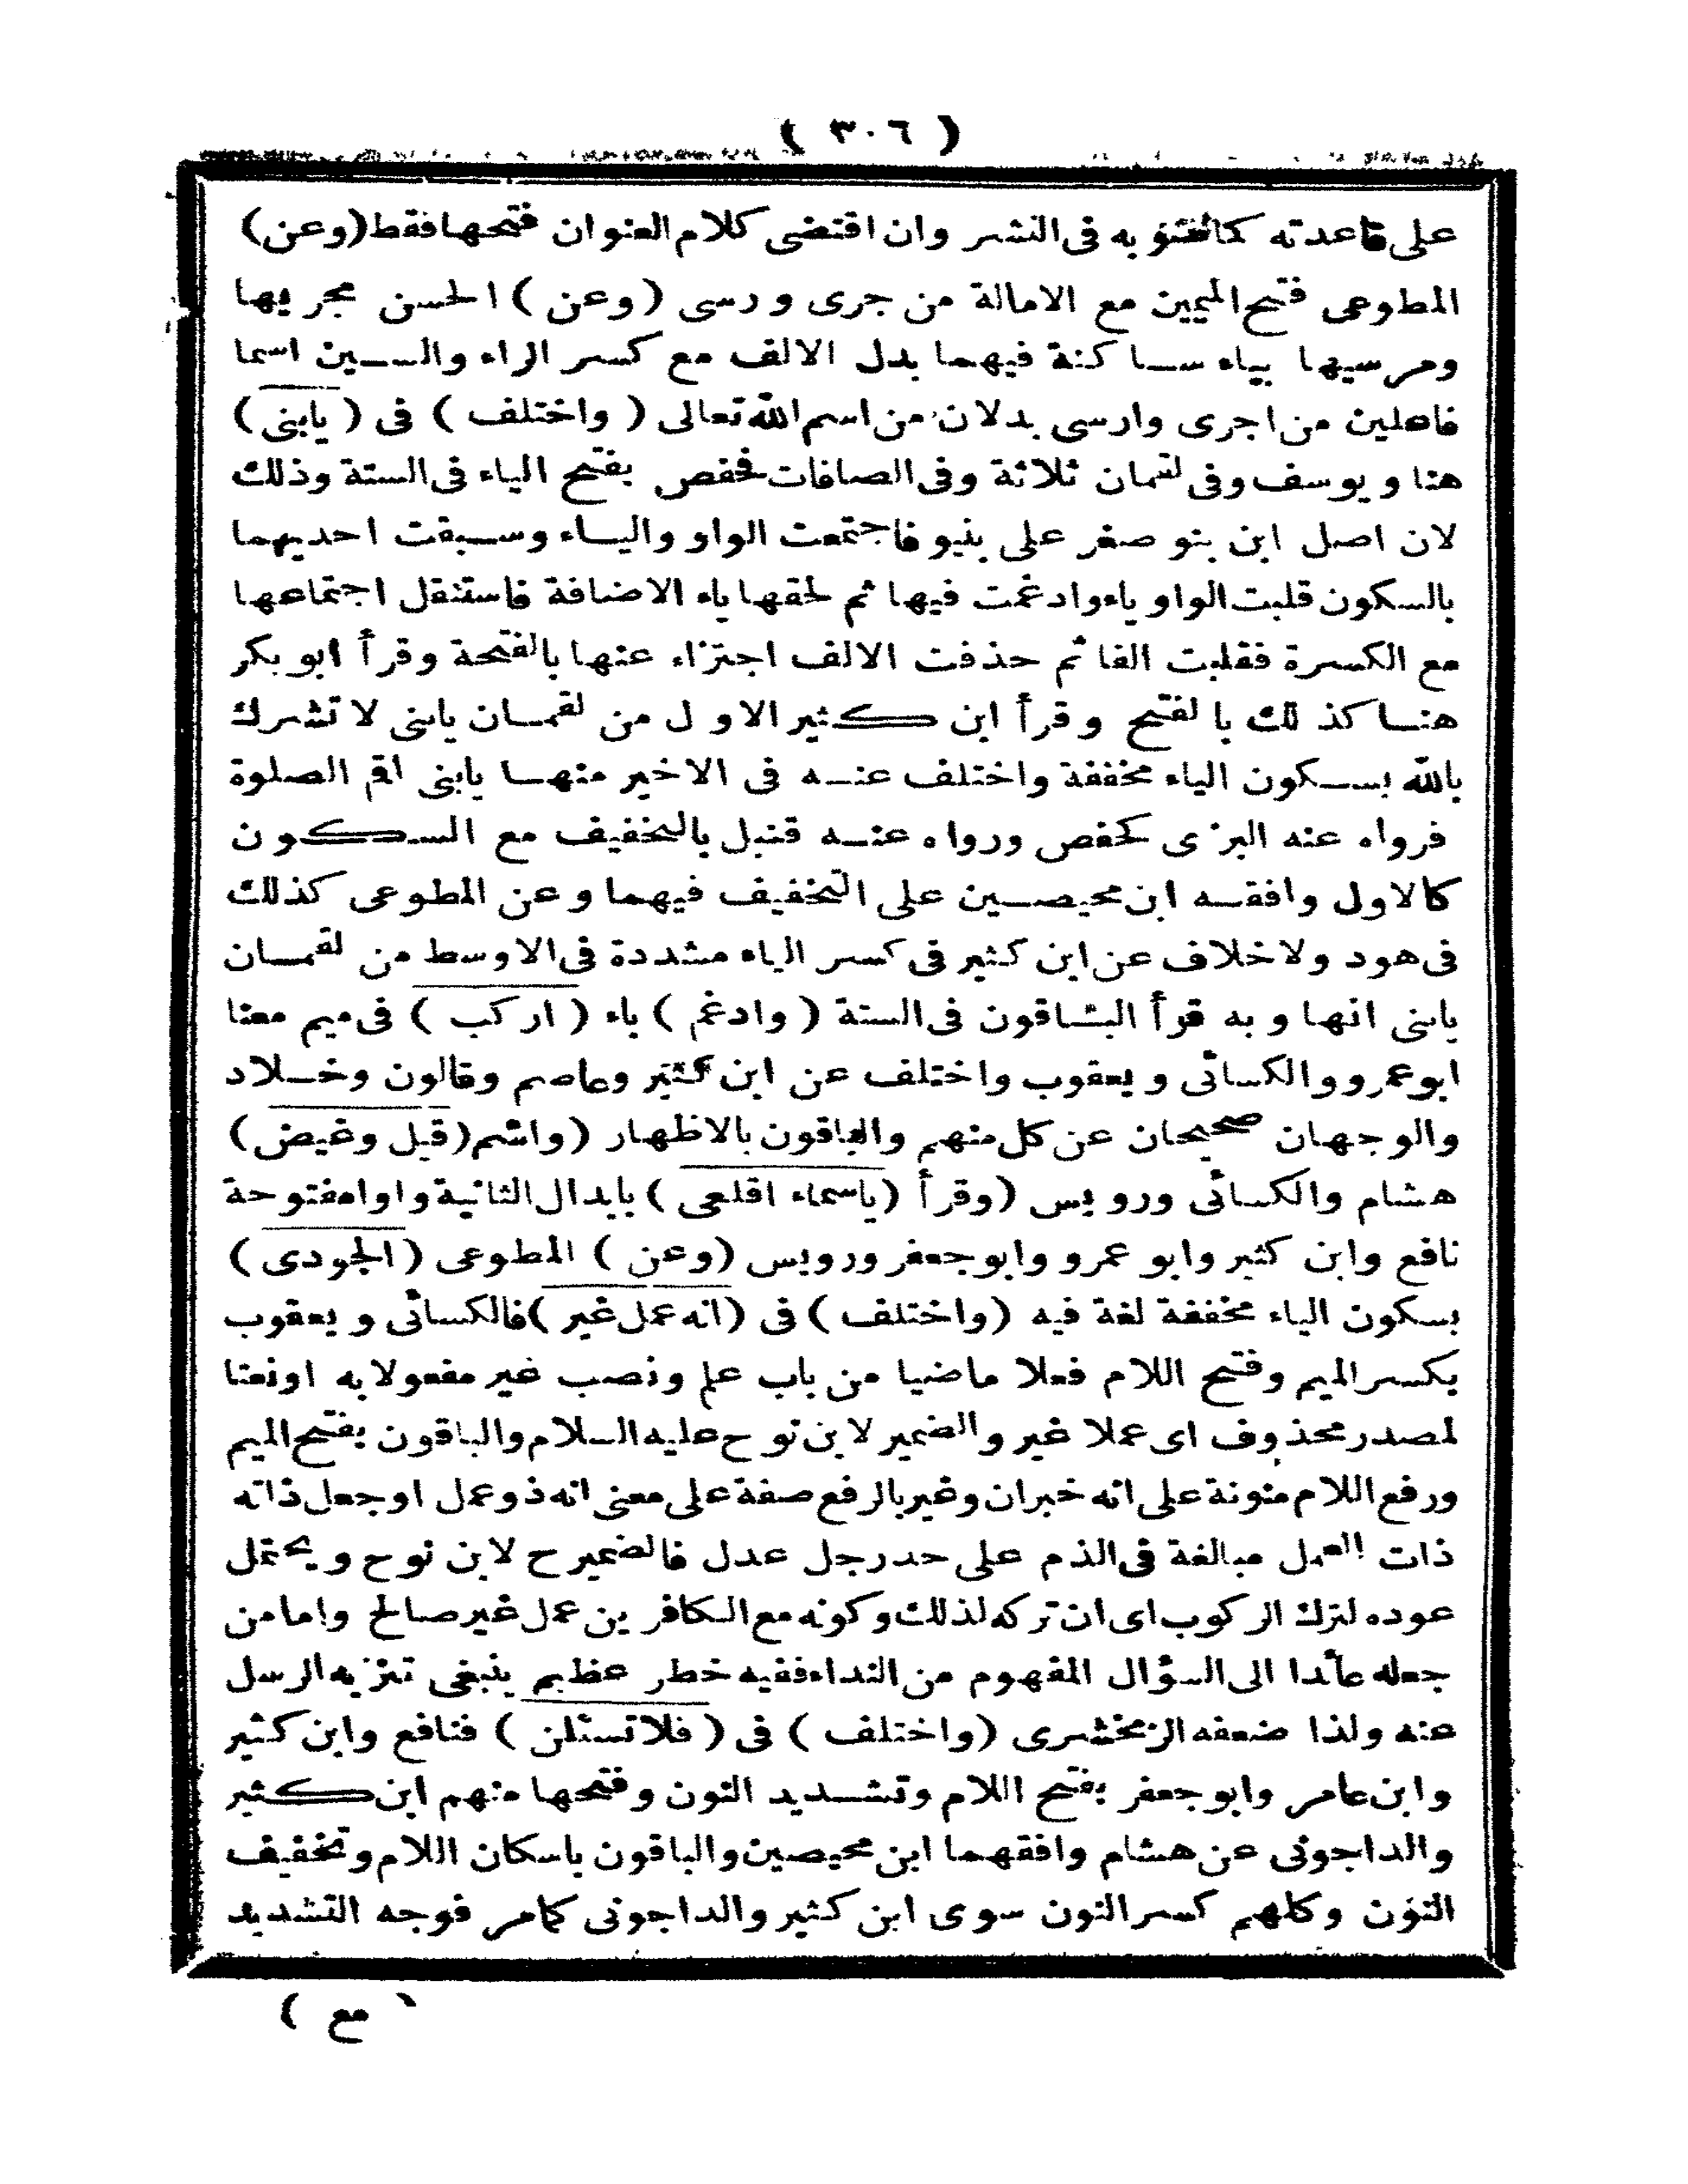 ( ٣٠٦ )
على قاعدته كما به فى النشر وان اقتضى كلام العنوان فتحها فقط (وعن)
المطوعى فتح الميمين مع الامالة من جرى ورسى (وعن) الحسن مجريها
ومرسيها بياء ساكنة فيهما بدل الالف مع كسر الراء والسين اسما
فاعلين من اجرى وارسى بدلان من اسم الله تعالى (واختلف) فى (يابنى)
هنا ويوسف وفى لقمان ثلاثة وفى الصافات فحفص بفتح الياء فى الستة وذلك
لان اصل ابن بنو صغر على بنيو فاجتمعت الواو والياء وسبقت احديهما
بالسكون قلبت الواو ياء وادغمت فيها ثم لحقها ياء الاضافة فاستثقل اجتماعها
مع الكسرة فقلبت الفا ثم حذفت الالف اجتزاء عنها بالفتحة وقرأ ابو بكر
هنا كذلك بالفتح وقرأ ابن كثير الاول من لقمان يابنى لا تشرك
بالله بسكون الياء مخففة واختلف عنه فى الاخير منها يابنى اقم الصلوة
فرواه عنه البزى كحفص ورواه عنه قنبل بالتخفيف مع السكون
كالاول وافقه ابن محيصين على التخفيف فيهما وعن المطوعى كذلك
فى هود ولا خلاف عن ابن كثير فى كسر الياء مشددة فى الاوسط من لقمان
يابنى انها وبه قرأ الباقون فى الستة (وادغم) باء (اركب) فى ميم معنا
ابو عمرو والكسائى ويعقوب واختلف عن ابن كثير وعاصم وقالون وخلاد
والوجهان صحيحان عن كل منهم والباقون بالاظهار (واشم (قيل وغيض)
هشام والكسائى ورويس (وقرأ (ياسماء اقلعى) بابدال الثانية واوا مفتوحة
نافع وابن كثير وابو عمرو وابو جعفر ورويس (وعن) المطوعى (الجودى)
بسكون الياء مخففة لغة فيه (واختلف) فى (انه عمل غير) فالكسائى ويعقوب
بكسر الميم وفتح اللام فعلا ماضيا من باب علم ونصب غير مفعولا به اونعتا
لمصدر محذوف اى عملا غير والضمير لابن نوح عليه السلام والباقون بفتح الميم
ورفع اللام منونة على انه خبران وغير بالرفع صفة على معنى انه ذو عمل اوجعل ذاته
ذات العمل مبالغة فى الذم على حد رجل عدل فالضمير ح لابن نوح ويحتمل
عوده لترك الركوب اى ان تركه لذلك وكونه مع الكافرين عمل غير صالح واما من
جعله عائدا الى السؤال المفهوم من النداء ففيه خطر عظيم ينبغى تنزيه الرسل
عنه ولذا ضعفه الزمخشرى (واختلف) فى (فلا تسئلن) فنافع وابن كثير
وابن عامر وابو جعفر بفتح اللام وتشديد النون وفتحها منهم ابن كثير
والداجونى عن هشام وافقهما ابن محيصين والباقون باسكان اللام وتخفيف
النون وكلهم كسر النون سوى ابن كثير والداجونى كامر فوجه التشديد
( مع )